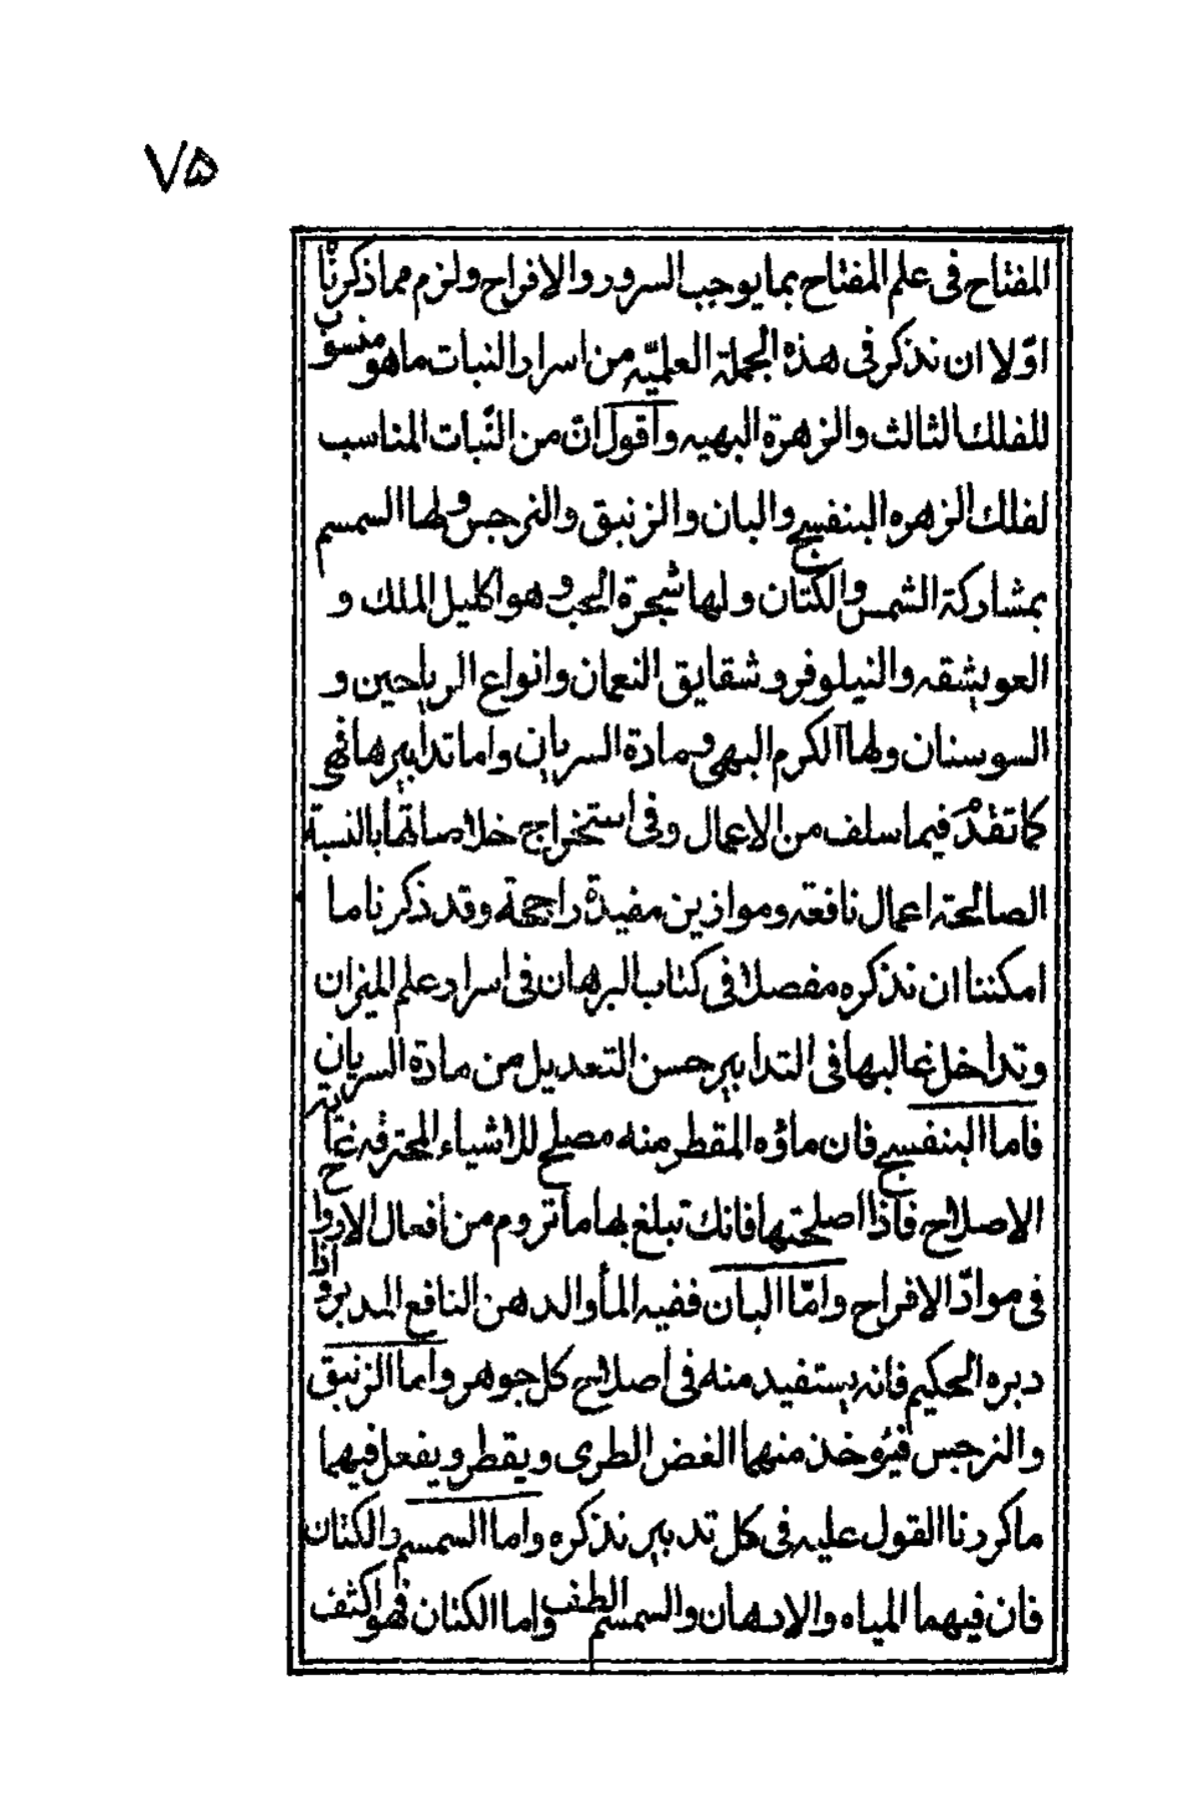 ٧۵
المفتاح فى علم المفتاح بما يوجب السرور والافراح ولزم مما ذكرنا
اوّلا ان نذكر فى هذه الجملة العلميّه من اسرار النبات ما هو منسوب
للفلك الثالث والزهرة البهيه وأقول انّ من النّبات المناسب
لفلك الزهره البنفسج والبان والزنبق والنرجس ولها السمسم
بمشاركة الشمس والكتان ولها شجرة الحب وهو اكليل الملك و
العوبشقه والنيلوفر وشقايق النعمان وانواع الرياحين و
السوسنان ولها الكرم البهى ومادة السريان واما تدابيرها فهى
كما تقدّم فيما سلف من الاعمال وفى استخراج خلاصاتها بالنسبة
الصالحة اعمال نافعة وموازين مفيدة راجحة وقد ذكرنا ما
امكننا ان نذكره مفصلا فى كتاب البرهان فى اسرار علم الميزان
وتداخل غالبها فى التدابير حسن التعديل من مادة السريان
فاما البنفسج فان ماؤه المقطر منه مصلح للاشياء المحترقه غاية
الاصلاح فاذا اصلحتها فانك تبلغ بها ما تروم من أفعال الارواح
فى موادّ الافراح وامّا البان ففيه المأ والدهن النافع المدبر واذا
دبره الحكيم فانه يستفيد منه فى اصلاح كل جوهر وأما الزنبق
والنرجس فيؤخذ منهما الغض الطرى ويقطر ويفعل فيهما
ما كررنا القول عليه فى كل تدبير نذكره واما السمسم والكتان
فان فيهما المياه والادهان والسمسم الطف واما الكتان فهو اكثف